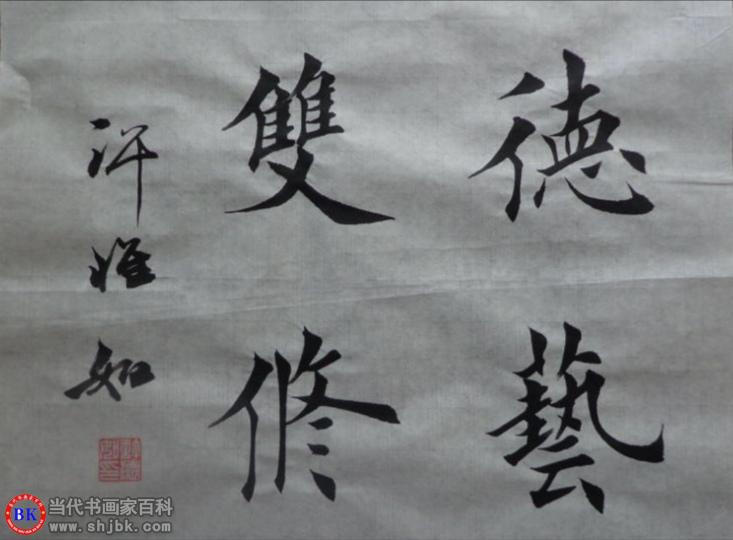 德藝
雙修
許惟如
BK
当代书画家百科
www.shjbk.com